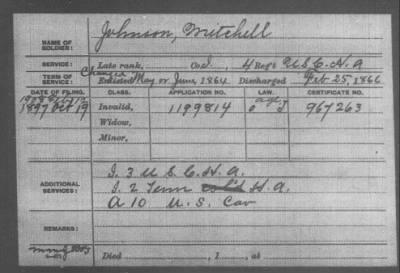 Johnson, Mitchell
NAME OF SOLDIER:
SERVICE: Late rank, Co. 4 Reg't U.S.C.H.A
TERM OF SERVICE: Enlisted May or June, 1864 Discharged Feb 25, 1866
DATE OF FILING. CLASS. APPLICATION NO. LAW. CERTIFICATE NO.
1897 Oct 19 Invalid, 1199814 967263
Widow,
Minor,
ADDITIONAL SERVICES:
I. 3 U.S.C.H.A.
I. 2 Tenn Col'd H.A.
A 10 U.S. Cav
REMARKS:
Died , 1 , at